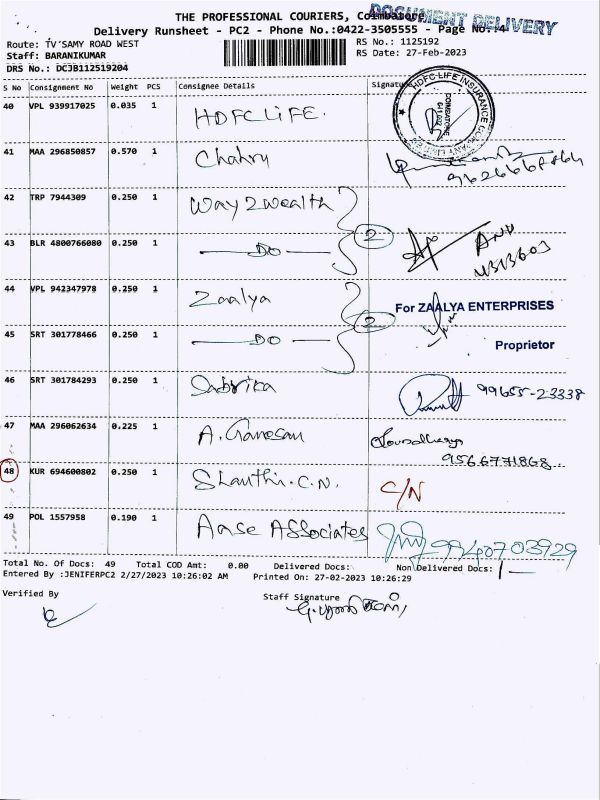 THE PROFESSIONAL COURIERS, Coimbatore
DOCUMENT DELIVERY
Delivery Runsheet - PC2 - Phone No.:0422-3505555 - Page No.:4
Route: TV SAMY ROAD WEST
RS No.: 1125192
Staff: BARANIKUMAR
RS Date: 27-Feb-2023
DRS No.: DCJB112519204
S No Consignment No Weight PCS Consignee Details Signature
HDFC-LIFE INSURANCE COMPANY LIMITED
COIMBATORE
40 VPL 939917025 0.035 1 HDFC LIFE.
41 MAA 296850857 0.570 1 Chakry
42 TRP 7944309 0.250 1 Way2wealth
2
43 BLR 4800766080 0.250 1 DO
44 VPL 942347978 0.250 1 Zaalya For ZAALYA ENTERPRISES
2
45 SRT 301778466 0.250 1 DO Proprietor
46 SRT 301784293 0.250 1 Sabrika 99655-23338
47 MAA 296062634 0.225 1 A. Ganesan
9566771868
48 KUR 694600802 0.250 1 Shanthi. C.N. C/N
49 POL 1557958 0.190 1 Aase Associates 9940703929
Total No. Of Docs: 49 Total COD Amt: 0.00 Delivered Docs: Non Delivered Docs: 1
Entered By :JENIFERPC2 2/27/2023 10:26:02 AM Printed On: 27-02-2023 10:26:29
Verified By Staff Signature